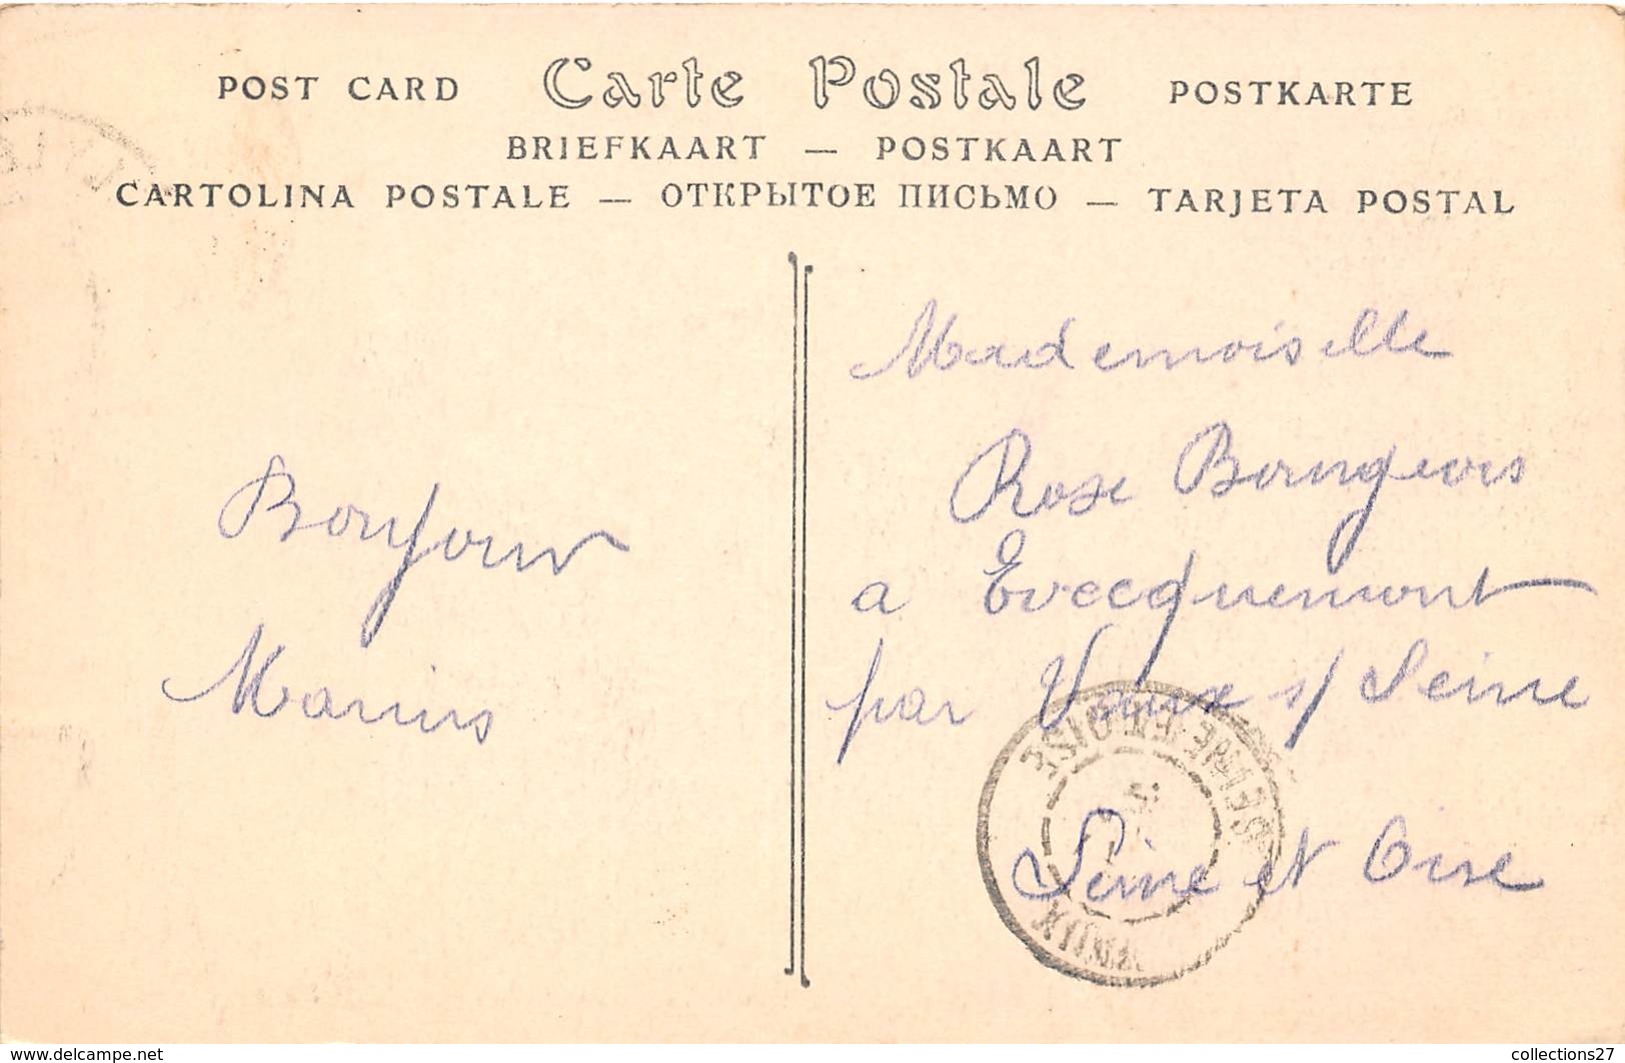 POST CARD Carte Postale POSTKARTE
BRIEFKAART — POSTKAART
CARTOLINA POSTALE — ОТКРЫТОЕ ПИСЬМО — TARJETA POSTAL
Bonjour
Marius
Mademoiselle
Rose Bourgeois
a Evecquemont
par Vaux s/ Seine
Seine et Oise
SEINE-ET-OISE
VAUX
www.delcampe.net
collections27